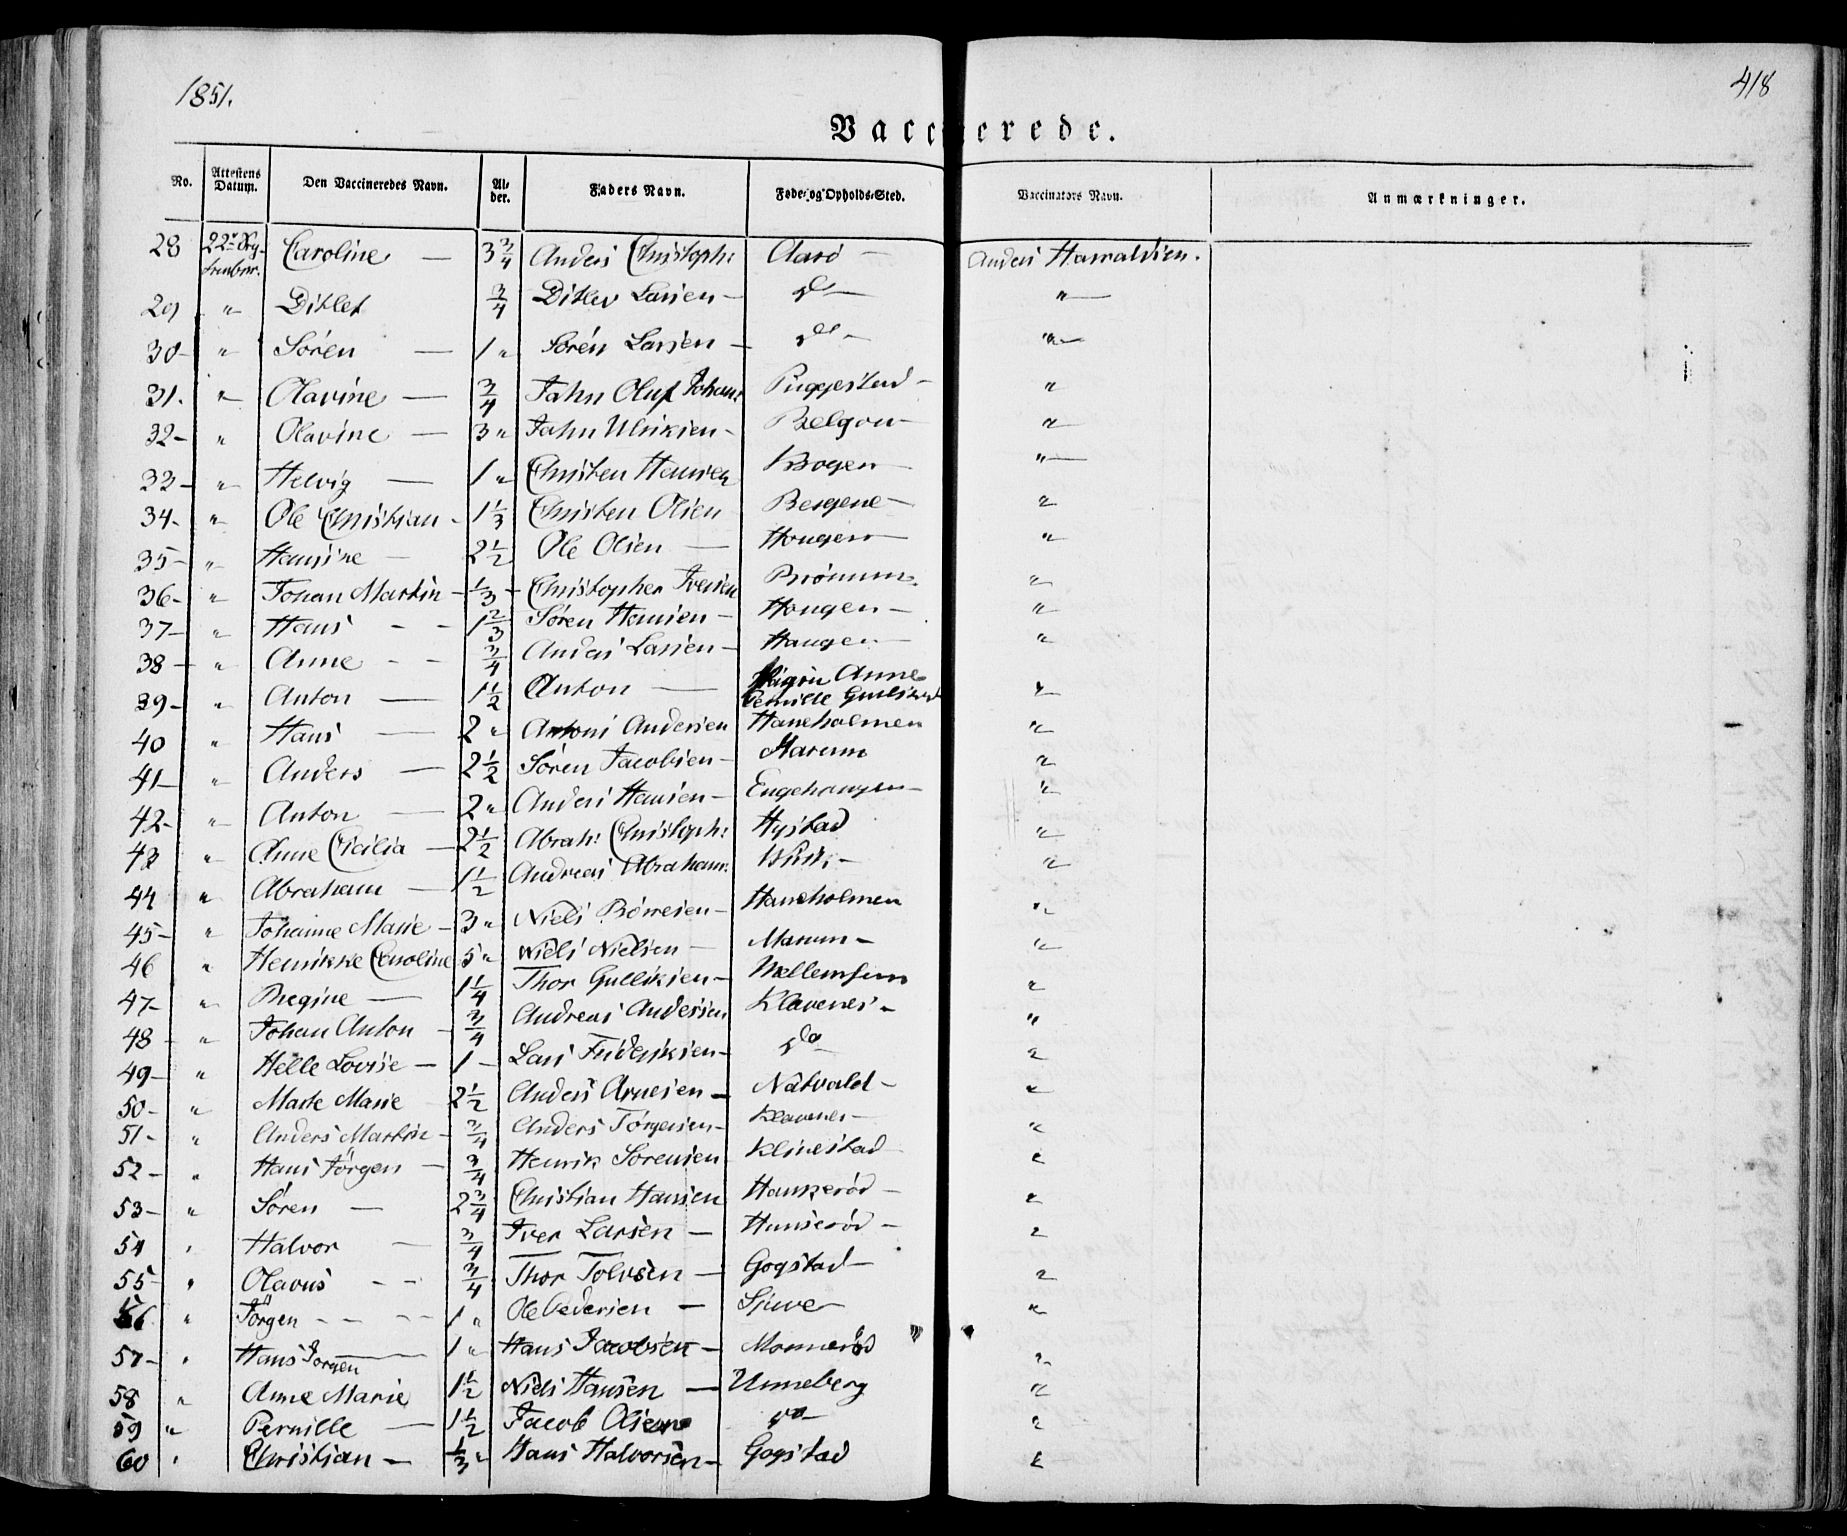 1851.
418
Vaccinerede.
No. Attestens Datum. Den Vaccineredes Navn. Al- der. Faders Navn. Føde- og Opholds-Sted. Vaccinators Navn. Anmærkninger.
28 22de Caroline — 3 3/4 Anders Christoph: Aarø — Anders Harraldsen.
29 " Ditlef 3/4 Ditlev Larsen — do — " —
30 — " Søren — 1 " Søren Larsen — do — " —
31. " Olavine — 3/4 Jahn Oluf Johan: Puggestad — "
32 — " Olavine — 3 " Jahn Ulriksen — Belgon — "
33 — " Helvig — 1 " Christen Hansen Krogen — " —
34 - " Ole Christian - 1 1/3 Christen Olsen Bergene — "
35 — " Hansine — 2 1/2 Ole Olsen — Hougen — "
36 - " Johan Martin — 1/3 - Christopher Iversen "
37 — " Hans - - 1 2/3 Søren Hansen — Hougen — "
38 — " Anne - - 3/4 Anders Larsen — Haugen — "
39 - " Anton — 1 1/2 Anton — Anne Pernille "
40 " Hans — 2 " Antoni Andersen Haneholmen "
41 — " Anders — 2 1/2 Søren Jacobsen — Marum "
42 - " Anton — 2 " Anders Hansen — Engehaugen — "
43 " Anne Cicilia — 2 1/2 Abrah: Christoph: Hystad "
44 " Abraham — 1 1/2 Andreas Abraham: "
45 — " Johanne Marie — 3 " Niels Børresen — Haneholmen "
46 " Henrikke Caroline 5 " Niels Nielsen — Marum — "
47 - " Regine — 1 1/4 Thor Gulliksen — Mellemsem "
48 — " Johan Anton - 3/4 Andreas Andersen Klavenes — "
49 — " Helle Lovise — 1 - Lars Frideriksen — do — "
50 - " Marte Marie 2 1/2 Anders Arnesen — Natvald — "
51 - " Anders Martin — 3/4 Anders Jørgensen — Klavenes — "
52 - " Hans Jørgen — 3/4 Henrik Sørensen Klinestad "
53 — " Søren — 2 3/4 Christian Hansen Haukerød — "
54 " Halvor — 3/4 Iver Larsen — Hunserød — "
55 - " Olavus - - 3/4 Thor Tolvsen — Gogstad — "
56 " Jørgen - - - 1 " Ole Pedersen — Sjuve — "
57 - " Hans Jorgen — 1 " Hans Jacobsen — Monnerød "
58 " Anne Marie 1 1/2 Niels Hansen — Unneberg "
59 " Pernille — 1 1/2 Jacob Olsen do — "
60 " Christian — 1/3 " Hans Halvorsen — Gogstad "